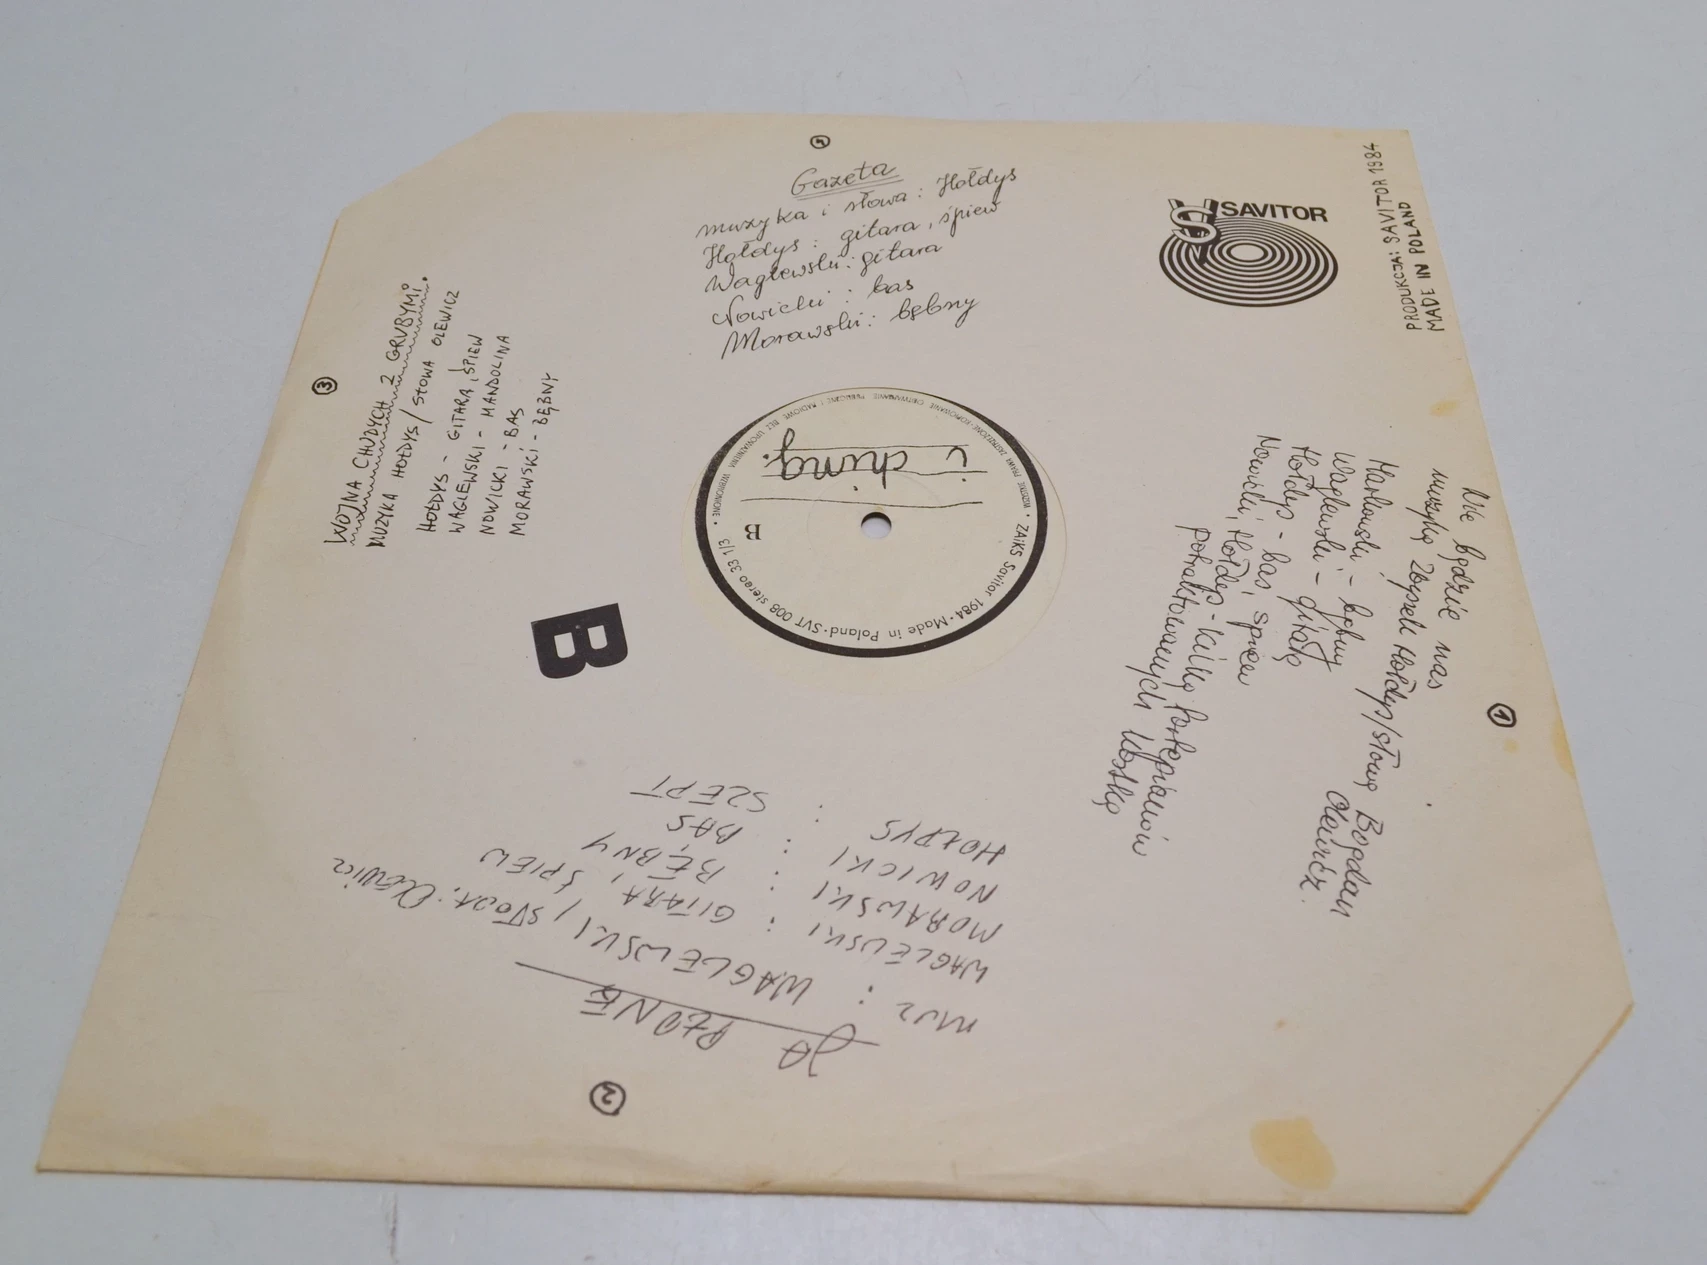 4
Gazeta
muzyka i słowa: Hołdys
Hołdys: gitara, śpiew
Waglewski: gitara
Nowicki: bas
Morawski: bębny
SAVITOR
PRODUKCJA: SAVITOR 1984
MADE IN POLAND
3
WOJNA CHUDYCH Z GRUBYMI.
MUZYKA HOŁDYS / SŁOWA OLEWICZ
HOŁDYS - GITARA, ŚPIEW
WAGLEWSKI - MANDOLINA
NOWICKI - BAS
MORAWSKI - BĘBNY
i ching.
B
WSZELKIE PRAWA ZASTRZEŻONE · KOPIOWANIE ODTWARZANIE PUBLICZNE I RADIOWE BEZ UPOWAŻNIENIA WZBRONIONE •
ZAiKS Savitor 1984 · Made in Poland · SVT 008 stereo 33 1/3
B
1
Nie będzie nas
muzyka Zbyszek Hołdys / słowa Bogdan
Olewicz.
Markowski - bębny
Waglewski - gitara
Hołdys - bas, śpiew
Nowicki, Hołdys - kilka fortepianów
potraktowanych kostką
2
JA PŁONĘ
MUZ : WAGLEWSKI / SŁOWA: Olewicz
WAGLEWSKI : GITARA, ŚPIEW
MORAWSKI : BĘBNY
NOWICKI : BAS
HOŁDYS : SZEPT